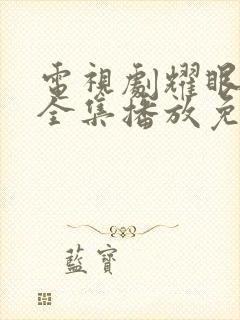 電視劇耀眼
全集播放免
藍寶